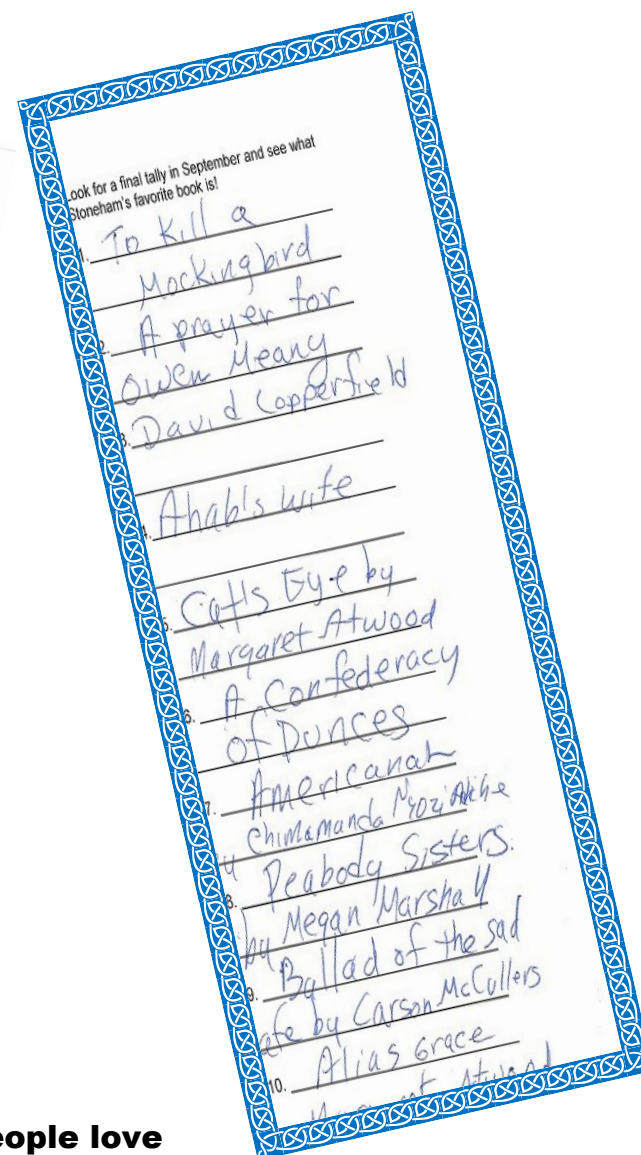 ook for a final tally in September and see what
Stoneham's favorite book is!
1. To Kill a
Mockingbird
2. A prayer for
Owen Meany
3. David Copperfield
4. Ahab's wife
5. Cat's Eye by
Margaret Atwood
6. A Confederacy
of Dunces
7. Americanah
Chimamanda Ngozi Adiche
8. Peabody Sisters.
by Megan Marshall
9. Ballad of the sad
afe by Carson McCullers
10. Alias Grace
Atwood
eople love